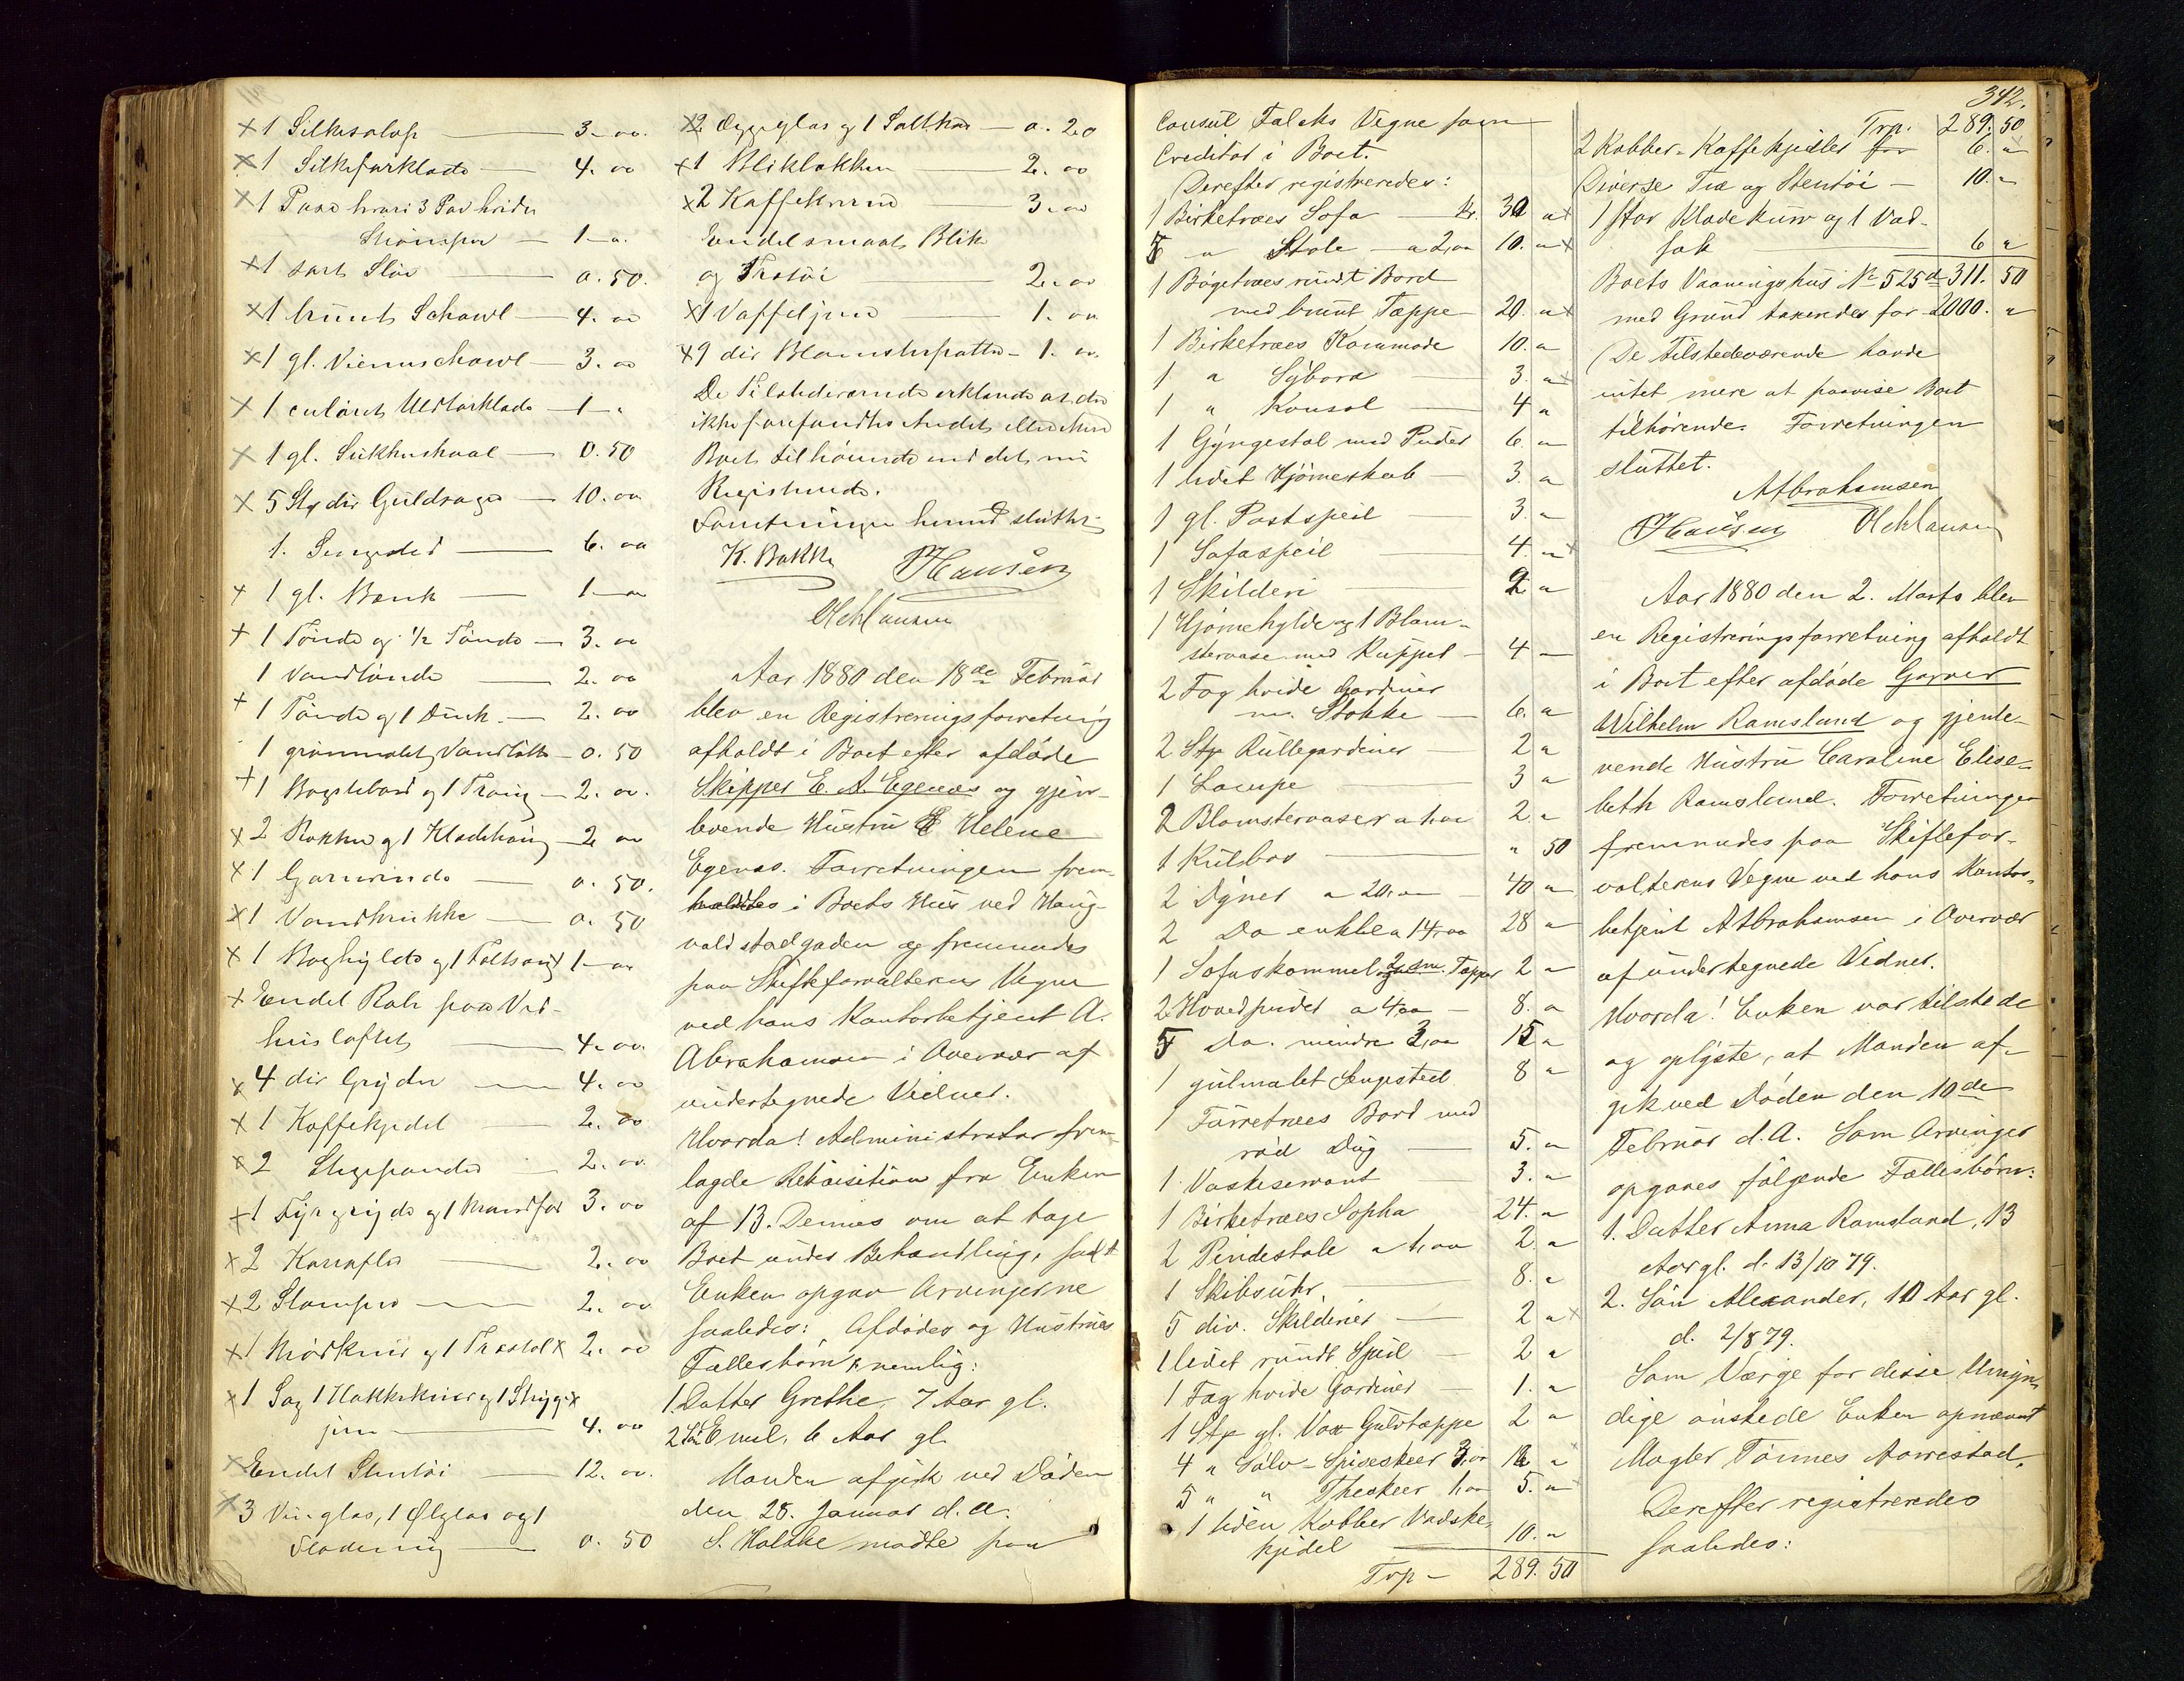 × 1 Silkesalop — 3. 00.
× 1 Silkeforklæde — 4. 00
× 1 Par hvari 3 Par hvide
Strømper — 1. "
× 1 sort Slør — 0. 50.
× 1 brunt Schawl — 4. 00
× 1 gl. Vienerschawl — 3. 00
× 1 culørt Uldtørklæde — 1. "
× 1 gl. — 0. 50
× 5 Stkr div Guldsager — 10. 00
1. Sengested — 6. 00
× 1 gl. Bænk — 1. 00
× 1 Tønde og 1/2 Tønde — 3. 00
1 Vandtønde — 2. 00
× 1 Tønde og 1 Dunk — 2. 00
1 grønmalet Vandbøtte — 0. 50
× 1 Bagstebord og 1 Traug — 2. 00.
× 2 Rokker og 1 — 2. 00
× 1 Garnvinde — 0. 50.
× 1 Vandkrukke — 0. 50
× 1 Boghylde og 1 — 1. 00
× Endel Rak paa Ved-
husloftet — 4. 00.
× 4 div Gryder — 4. 00
× 1 Kaffekjedel — 2. 00
× 2 Stegepander — 2. 00.
× 1 Fyrgryde og 1 — 3. 00
× 2 — 2. 00
× 2 Stamper — 2. 00
× 1 og 1 Træstol × 2. 00
× 1 Sag 1 Hakkekniv og 1 Stryge ×
jern — 4. 00
× Endel Stentøi — 12. 00.
× 3 Vinglas, 1 Ølglas og 1
— 0. 50
× 2 Ægglas og 1 Saltkar — 0. 20
× 1 Blikbakke — 2. 00
× 2 Kaffe — 3. 00
Endel smaat Blik
og Trætøi — 2. 00
× 1 Vaffeljern — 1. 00
× 9 div Blomsterpotter — 1. 00.
De Tilstedeværende erklærede at der
ikke forefandtes Andet eller Mere
Boet tilhørende end det nu
Registrerede.
Forretningen hermed sluttet.
K. Bakke PHansen
OlehLaursen
Aar 1880 den 18de Februar
blev en Registreringsforretning
afholdt i Boet efter afdøde
Skipper E. A. Egenæs og gjen-
levende Hustru Helene
Egenæs. Forretningen frem-
holdtes i Boets Huus ved Haug-
valdstadgaden og fremmedes
paa Skifteforvalterens Vegne
ved hans Kontorbetjent A.
Abrahamsen i Overvær af
undertegnede Vidner.
Hvorda! Administrator frem-
lagde Rekvisition fra Enken
af 13. Dennes om at tage
Boet under Behandling, samt
Enken opgav Arvingerne
saaledes: Afdødes og Hustrues
Fællesbørn, nemlig:
1. Datter Grethe, 7 Aar gl.
2 Søn Emil, 6 Aar gl.
Manden afgik ved Døden
den 28. Januar d. A.
S. Holbke mødte paa
342.
Consul Falcks Vegne som
Creditor i Boet.
Derefter registreredes:
1 Birketræes Sofa — Kr. 30 " ×
5 " Stole — a 2,00 10. " ×
1 Bøgetræes rundt Bord
med brunt Tæppe — 20. " ×
1 Birketræes Kommode 10. "
1 " Sybord — 3. " ×
1 " Konsol — 4 "
1 Gyngestol med Puder 6 "
1 lidet Hjørneskab — 3. "
1 gl. Postspeil — 3. "
1 Sofaspeil — 4. " ×
1 Skilderi — 2 "
1 Hjørnehylde og 1 Blom-
stervase med Kuppel — 4 —
2 Fag hvide Gardiner
m. Stokke — 6. "
2 Stkr Rullegardiner 2 "
1 Lampe — 3 "
2 Blomstervaser a 1,00 2. "
1 Kulbox — " 50
2 Dyner a 20,00 — 40 "
2 Do enkle a 14,00 28 "
1 Sofaskammel og 2 sm. Tæpper 2 "
2 Hovedpuder a 4,00 — 8. "
5 Do. mindre 3,00 15 "
1 gulmalet Sengested 8 "
1 Furretræes Bord med
rød Dug — 5. "
1 Vaskeservant 3. "
1 Birketræes Sopha 24. "
2 Pindestole a 1,00 2. "
1 Skibsuhr. — 8. "
5 div. Skilderier — 2 " ×
1 lidet rundt Speil — 2 "
1 Fag hvide Gardiner — 1. "
1 Stk gl. Vox Gulvtæppe 2 "
4 " Sølv-Spiseskeer 3,00 12 "
5 " " Theskeer 1,00 5. "
1 liden Kobber Vadske-
kjedel — 10. "
Trp — 289. 50
Trp. 289. 50
2 Kobber-Kaffekjedler for 6. "
Diverse Træ og Stentøi — 10. "
1 stor Klædekurv og 1 Vad-
sæk — 6 "
Boets Vaaningshus No 525d 311. 50
med Grund taxeredes for 2000. "
De Tilstedeværende havde
intet mere at paavise Boet
tilhørende. Forretningen
sluttet.
AAbrahamsen
PHansen OlehLaursen
Aar 1880 den 2. Marts blev
en Registreringsforretning afholdt
i Boet efter afdøde Garver
Wilhelm Ramsland og gjenle-
vende Hustru Caroline Elise-
beth Ramsland. Forretningen
fremmedes paa Skiftefor-
valterens Vegne ved hans Kontor-
betjent AAbrahamsen i Overvær
af undertegnede Vidner.
Hvorda! Enken var tilstede
og oplyste, at Manden af-
gik ved Døden den 10de
Februar d. A. Som Arvinger
opgaves følgende Fællesbørn:
1. Datter Anna Ramsland, 13
Aar gl. d. 13/10 79.
2. Søn Alexander, 10 Aar gl.
d. 2/8 79.
Som Værge for disse Umyn-
dige ønskede Enken opnævnt
Mægler Tønnes Aarrestad.
Derefter registreredes
saaledes: